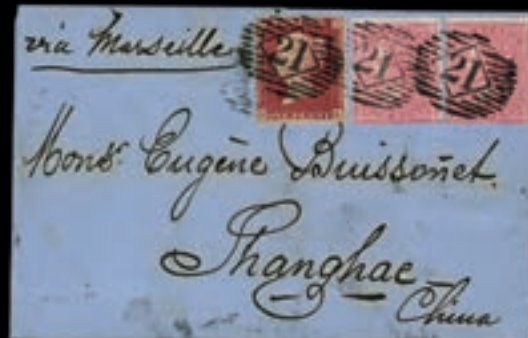 via Marseille
21 21 21
Monsr Eugène Buissonet.
Shanghae
China